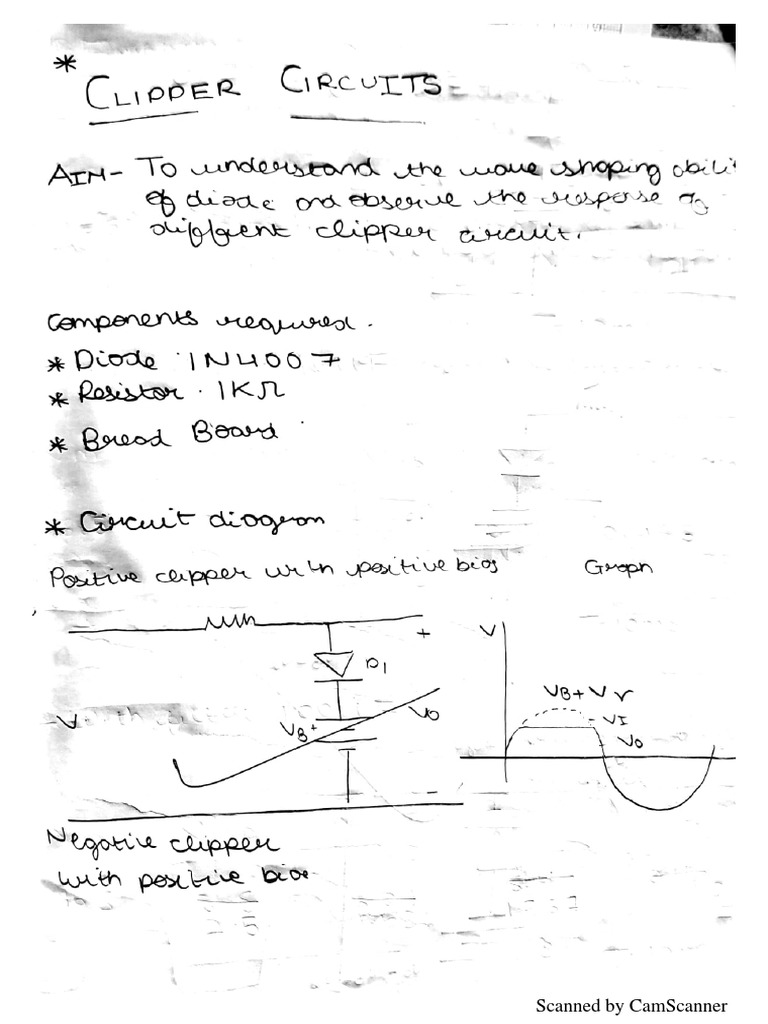 *
CLIPPER CIRCUITS
AIM- To understand the wave shaping abili
of diode and observe the response of
different clipper circuit.
Components required.
* Diode 1N4007
* Resistor. 1KΩ
* Bread Board
* Circuit diagram
Positive clipper with positive bias Graph
+ V
D1
VB+Vr
V VB+ VO VI
VO
-
Negative clipper
with positive bias
Scanned by CamScanner